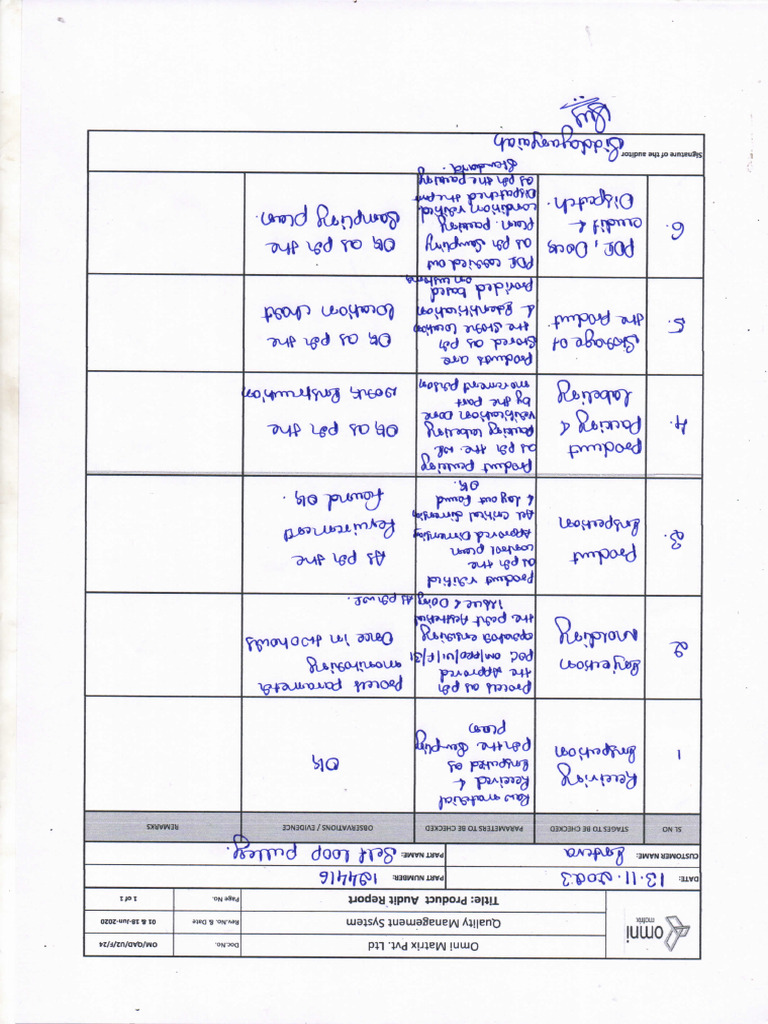 omni
matrix
Omni Matrix Pvt. Ltd
Quality Management System
Title: Product Audit Report
Doc.No. OM/QAD/U2/F/24
Rev.No. & Date 01 & 18-Jun-2020
Page No. 1 of 1
DATE: 13.11.2023 PART NUMBER: 194416
CUSTOMER NAME: PART NAME: Self Loop pulley.
SL NO STAGES TO BE CHECKED PARAMETERS TO BE CHECKED OBSERVATIONS / EVIDENCE REMARKS
1
Receiving
Inspection
Raw material
Received &
Inspected as
per the Sampling
plan
OK
2
Injection
Molding
Process as per
the Approved
PDC
operator ensuring
the part Aesthetical
issue & Doing As per W.I.
Process parameter
monitoring
Once in two hours
3.
Product
Inspection
product verified
as per the
control plan
Approved Dimension
All critical dimension
& Layout found
OK.
As per the
Requirement
Found OK.
4.
Product
Packing &
Labeling
Product packing
as per the W.I.
Packing labeling
verification Done
by the Part
movement person
OK, as per the
work Instruction
5.
Storage of
the Product
Products are
Stored as per
the Store location
& Identification
Provided based
on customer
OK, as per the
location chart
6.
PDI, Dock
audit &
Dispatch.
PDI carried out
as per Sampling
plan. packing
condition verified
Dispatched the part
as per the packing
Standard.
OK, as per the
Sampling plan.
Signature of the auditor